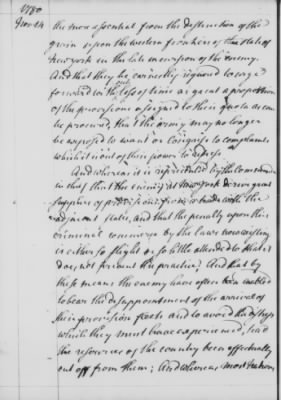 1780
Nov. 4
the more essential from the destruction of the
grain upon the western frontiers of the state of
New York in the late incursion of the enemy.
And that they be earnestly required to urge
forward without loss of time as great a proportion
of the provisions assigned to their quota as can
be procured, that the army may no longer
be exposed to want or Congress to complaints
which it is out of their power to redress
And whereas it is represented by the Commander
in chief that the enemy at New York derive great
supplies of provisions from a trade with the
adjacent states, and that the penalty upon this
criminal commerce by the laws now existing
is either so slight or so little attended to that it
does not prevent the practice; And that by
these means the enemy have often been enabled
to bear the disappointment of the arrival of
their provision fleets and to avoid the distress
which they must have experienced, had
the resources of the country been effectually
cut off from them; And whereas most